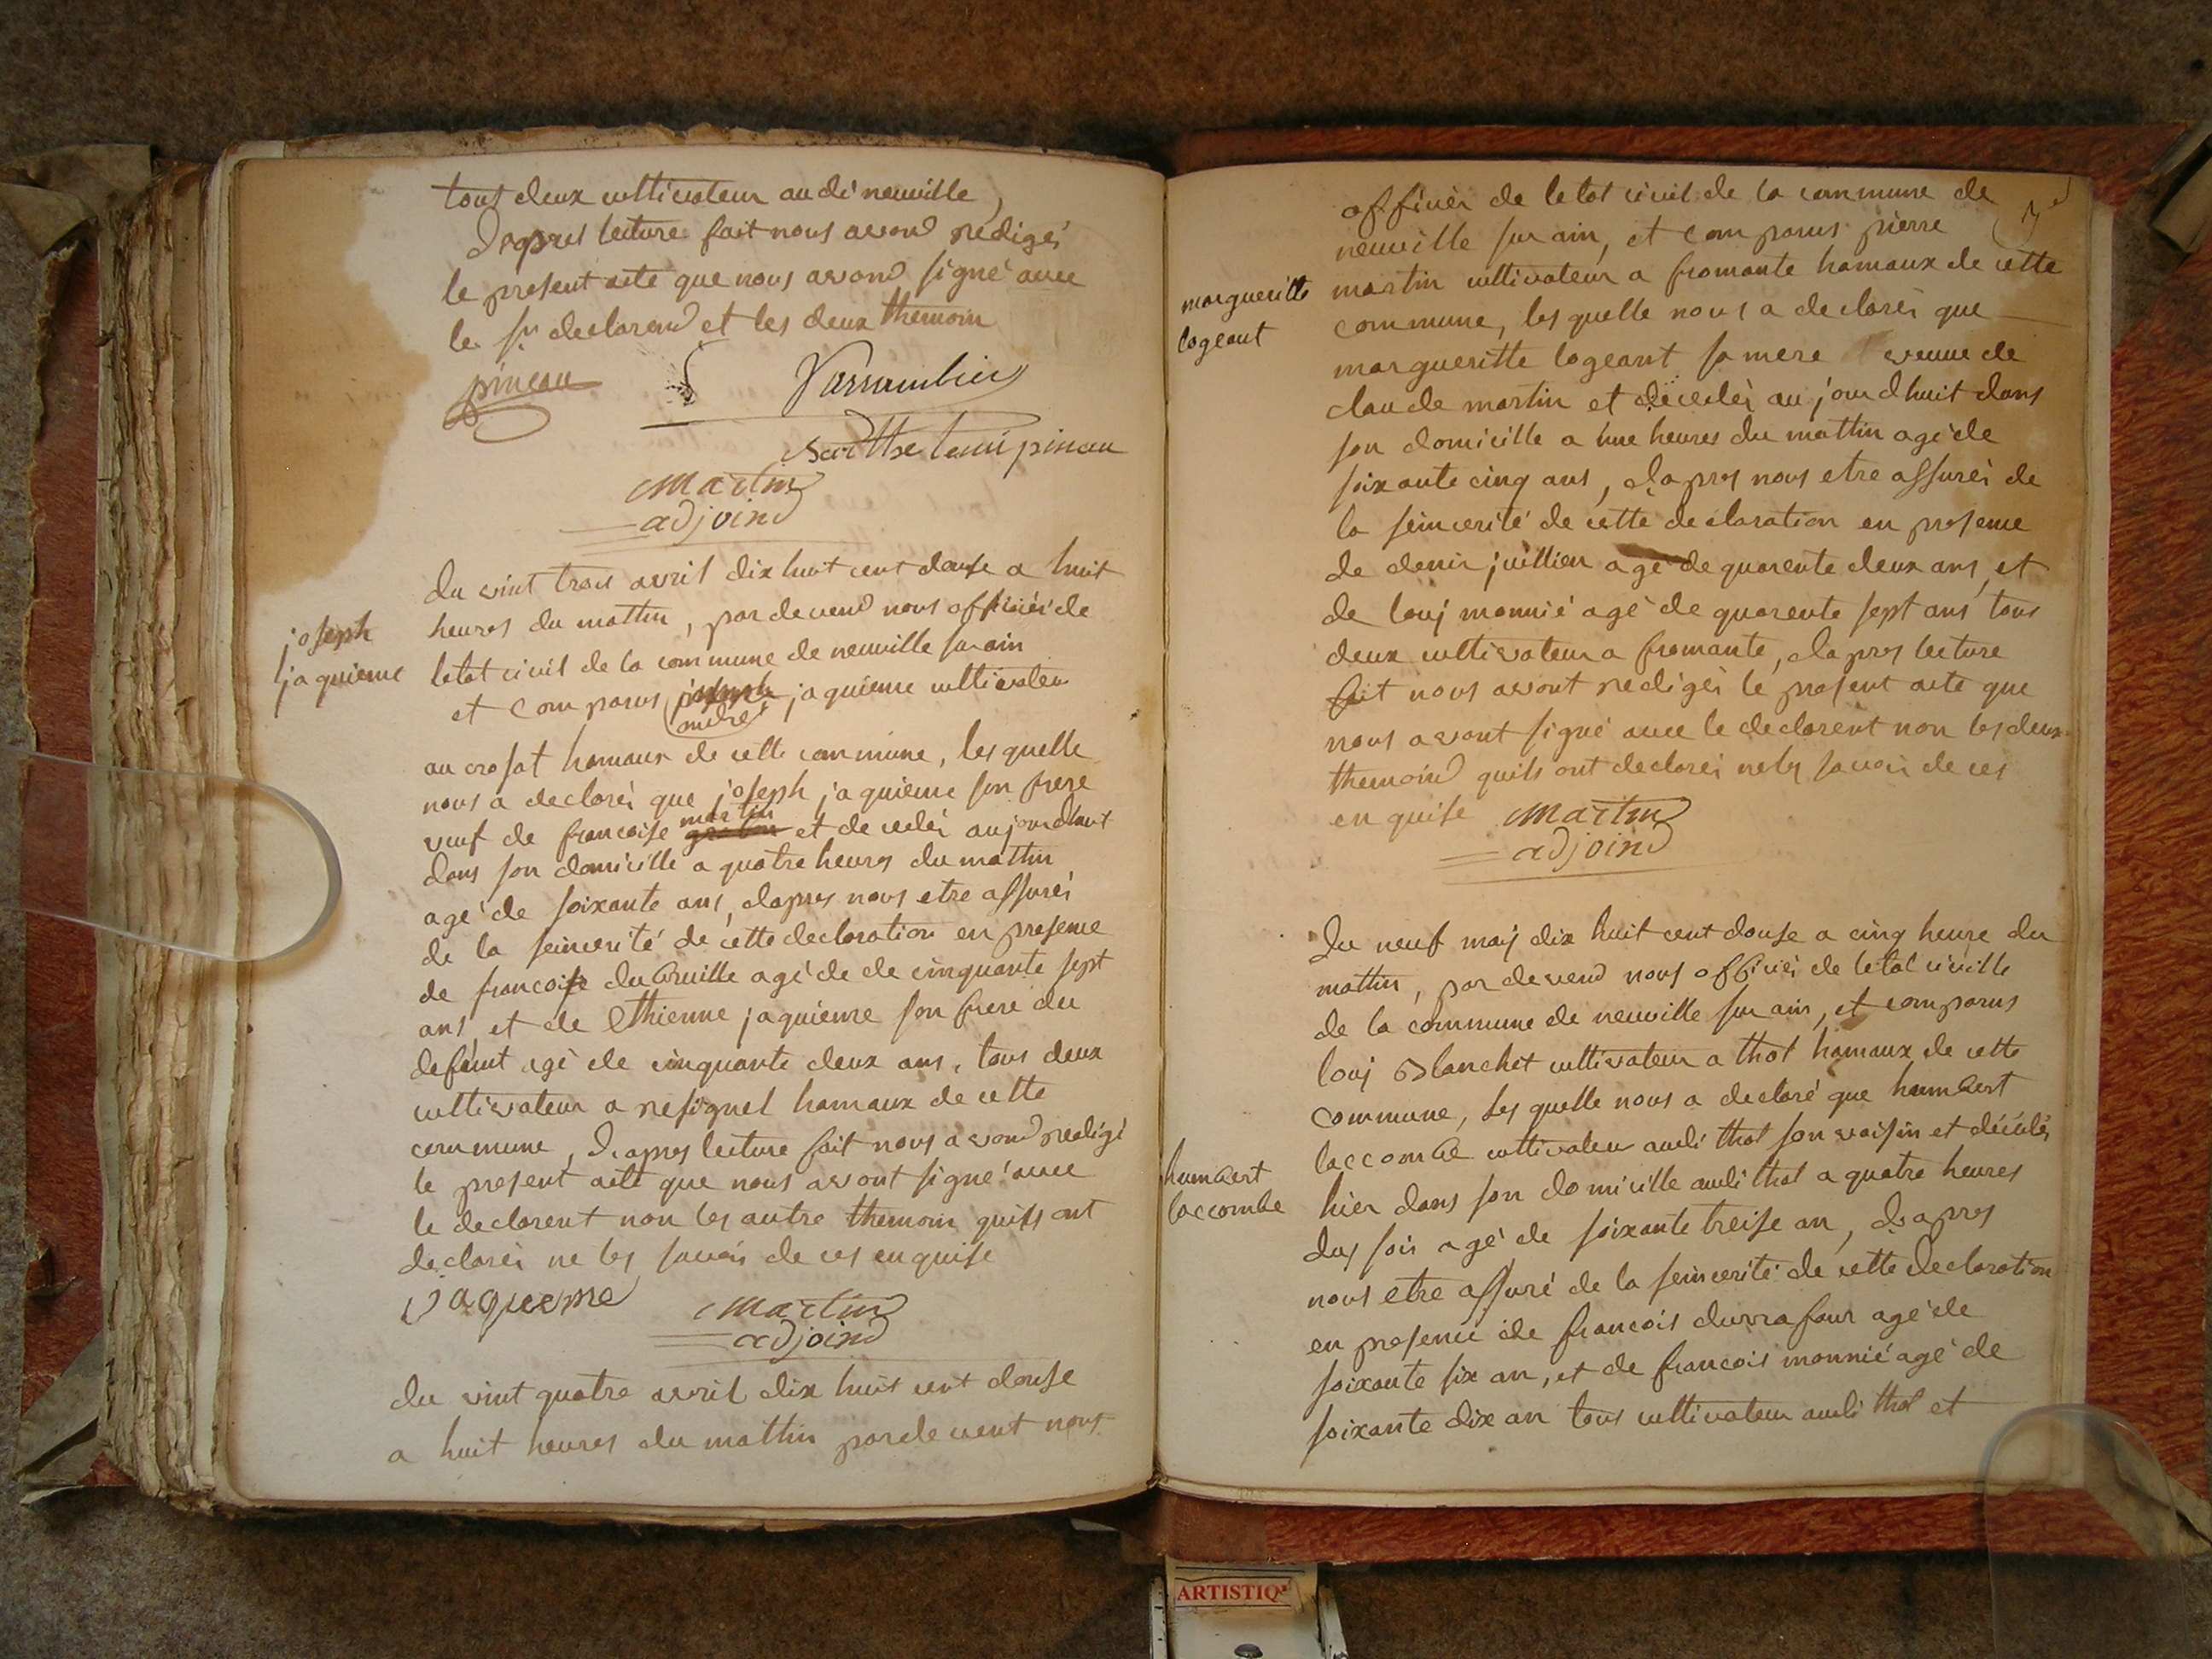 tous deux cultivateur audi neuville,
Daprest lecture fait nous avond redigéi
le present acte que nous avond signé avec
le sr declarend et les deux themoin
pineau
Barthelemi pineau
Martin
adjoind
Du vint trois avril dix huit cent douse a huit
heures du mattin, par devend nous officiéi de
letat civil de la commune de neuville sur ain
et comparus joseph jaquieme cultivateur
andre
au crosat hamaux de cette commune, lesquelle
nous a declaréi que joseph jaquieme son frere
martin
veuf de francoise et decedéi aujourdhuit
dans son domicille a quatre heures du mattin
agé de soixante ans, dapres nous etre assuréi
de la seincerité de cette declaration en presence
de francoise dubruille agé de de cinquante sept
ans, et de Ethienne jaquieme son frere du
defeunt agé de cinquante deux ans, tous deux
cultivateur a resignel hamaux de cette
commune, Dapres lecture fait nous avond redigé
le present acte que nous avont signé avec
le declarent non les autre themoin quils ont
declaréi ne les savoir de ces enquise
Jaqueme
Martin
adjoind
du vint quatre avril dix huit cent douse
a huit heures du mattin pardevent nous
joseph
jaquieme
officiéi de letat civil de la commune de
neuville sur ain, et comparus pierre
martin cultivateur a fromante hamaux de cette
commune, lesquelle nous a declaréi que
margueritte logeant sa mere veuve de
claude martin et decedéi aujourdhuit dans
son domicille a hune heures du mattin agé de
soixante cinq ans, dapres nous etre assuréi de
la seincerité de cette declaration en presence
de denir juillien agé de quarente deux ans, et
de louj monnié agé de quarente sept ans tous
deux cultivateur a fromante, dapres lecture
fait nous avont redigéi le present acte que
nous avont signé avec le declarent non les deux
themoind quils ont declaréi neles savoir de ces
enquise Martin
adjoind
margueritte
logeant
Du neuf maij dix huit cent douse a cinq heure du
mattin, par devend nous officiéi de letat civille
de la commune de neuville sur ain, et comparus
louj Blanchet cultivateur a thol hamaux de cette
commune, lesquelle nous a declaré que humbert
laccombe cultivateur audi thol son voisin et décédéi
hier dans son domicille audi thol a quatre heures
dus soir agé de soixante treise an, dapres
nous etre assuré de la seincerité de cette declaration
en presence de francois durrafour agé de
soixante six an, et de francois monnié agé de
soixante dix an tous cultivateur audi thol et
humbert
laccombe
ARTISTIQ